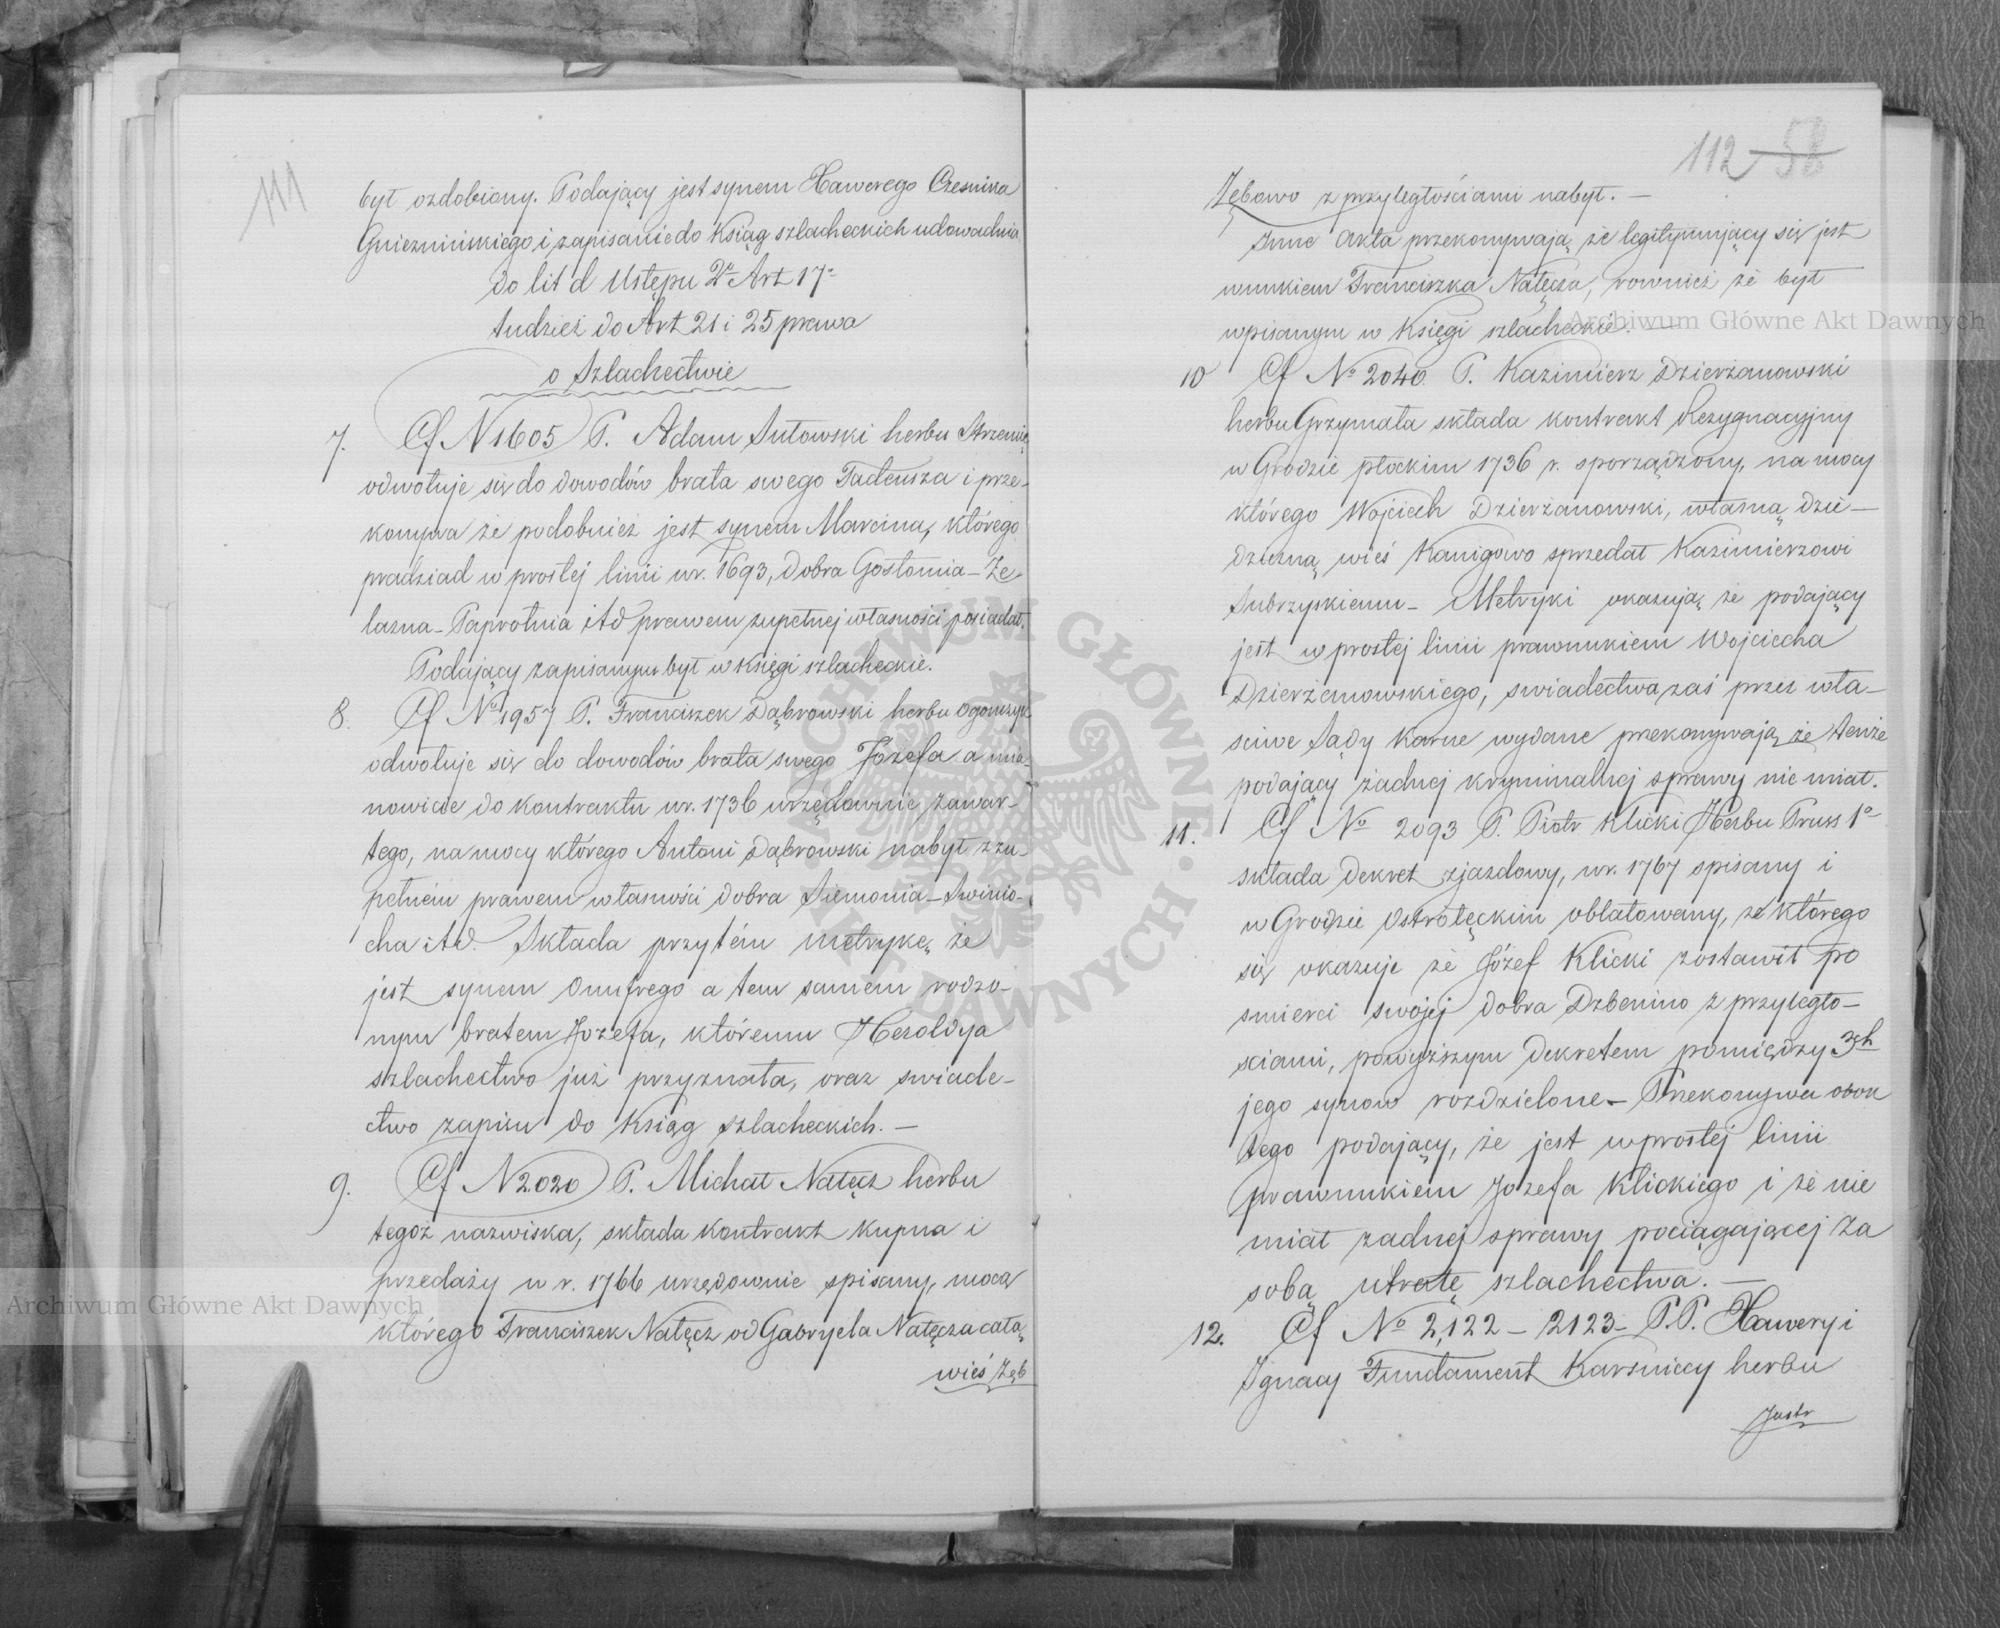 111
był ozdobiony. Podający jest synem Xawerego Cześnika
Gnieznińskiego i zapisanie do Ksiąg szlacheckich udowadnia
do lit d Ustępu 2º Art 17º
tudzież do Art 21 i 25 prawa
o Szlachectwie
7. Cf N 1605 P. Adam Sułowski herbu Strzemię
odwołuje się do dowodów brata swego Tadeusza i prze-
konywa że podobnież jest synem Marcina, którego
pradziad w prostej linii w r. 1693, dobra Gostomia-Że-
lazna-Paprotnia itd prawem zupełnej własności posiadał.
Podający zapisanym był w Księgi szlacheckie.
8. Cf Nº 1957 P. Franciszek Dąbrowski herbu Ogończyk
odwołuje się do dowodów brata swego Józefa a mia-
nowicie do kontraktu w r. 1736 urzędownie zawar-
tego, na mocy którego Antoni Dąbrowski nabył z zu-
pełném prawem własności dobra Siemonia-Swinio-
cha itd. Składa przytém metrykę że
jest synem Onufrego a tem samem rodzo-
nym bratem Jozefa, któremu Heroldya
szlachectwo już przyznała, oraz swiade-
ctwo zapisu do Ksiąg szlacheckich. -
9. Cf N 2020 P. Michał Nałęcz herbu
tegoż nazwiska, składa kontrakt kupna i
przedaży w r. 1766 urzędownie spisany, mocą
którego Franciszek Nałęcz od Gabryela Nałęcza całą
wieś Zęb
112 58
Zębowo z przyległościami nabył. -
Inne akta przekonywają że legitymujący się jest
wnukiem Franciszka Nałęcza, rownież że był
wpisanym w Księgi szlacheckie. -
10 Cf Nº 2040. P. Kazimierz Dzierżanowski
herbu Grzymała składa kontrakt Rezygnacyjny
w Grodzie płockim 1736 r. sporządzony, na mocy
którego Wojciech Dzierżanowski, własną dzie-
dziczną wieś Kanigowo sprzedał Kazimierzowi
Subrzyskiemu - Metryki okazują że podający
jest w prostej linii prawnukiem Wojciecha
Dzierżanowskiego, swiadectwa zaś przez wła-
sciwe Sądy Karne wydane przekonywają że tenże
podający żadnej kryminalnej sprawy nie miał.
11. Cf Nº 2093 P. Piotr Klicki Herbu Pruss 1º
składa Dekret zjazdowy, w r. 1767 spisany i
w Grodzie Ostrołęckim oblatowany, ze którego
się okazuje że Józef Klicki zostawił po
smierci swojej dobra Dzbenino z przyległo-
sciami, powyższym Dekretem pomiędzy 3ch
jego synow rozdzielone - Przekonywa obok
tego podający, że jest w prostej linii
prawnukiem Jozefa Klickiego i że nie
miał zadnej sprawy pociągającej za
sobą utratę szlachectwa. -
12. Cf Nº 2,122 - 2123 - P.P. Xawery i
Ignacy Fundament Karśniccy herbu
Jastr
Archiwum Główne Akt Dawnych
Archiwum Główne Akt Dawnych
ARCHIWUM GŁÓWNE AKT DAWNYCH